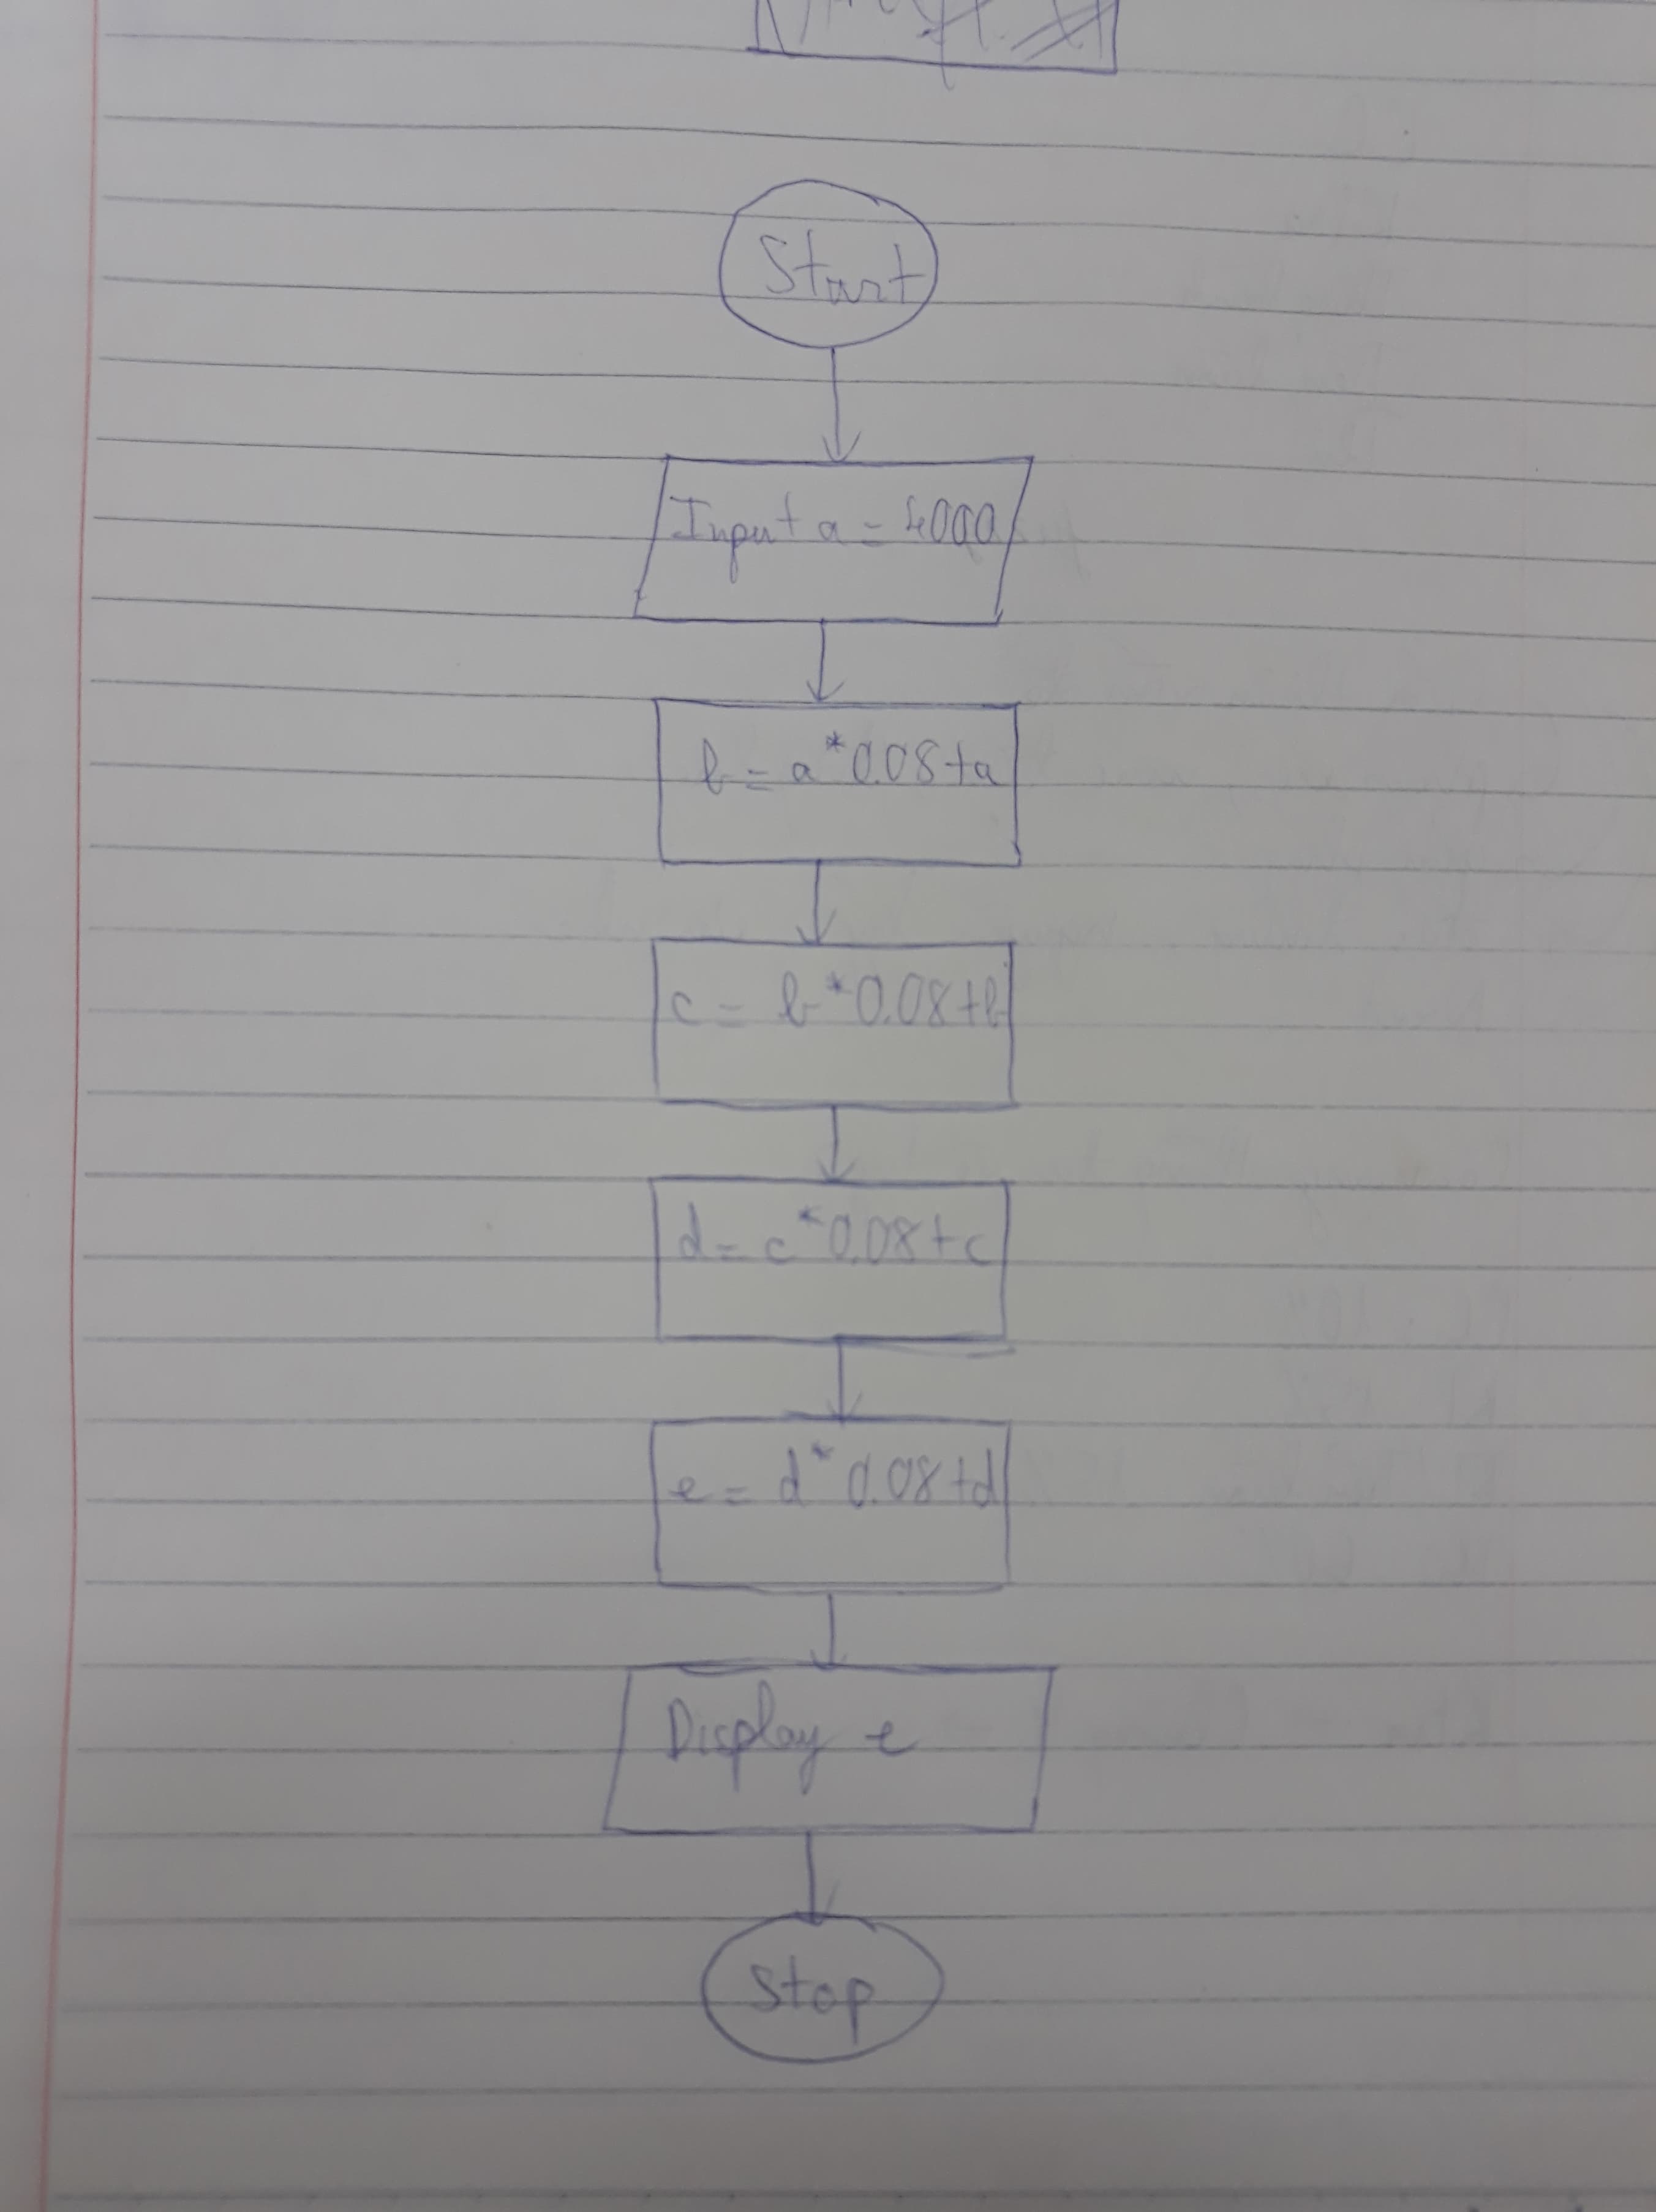 Start
Input a = 4000
b = a * 0.08 + a
c = b * 0.08 + b
d = c * 0.08 + c
e = d * 0.08 + d
Display e
Stop